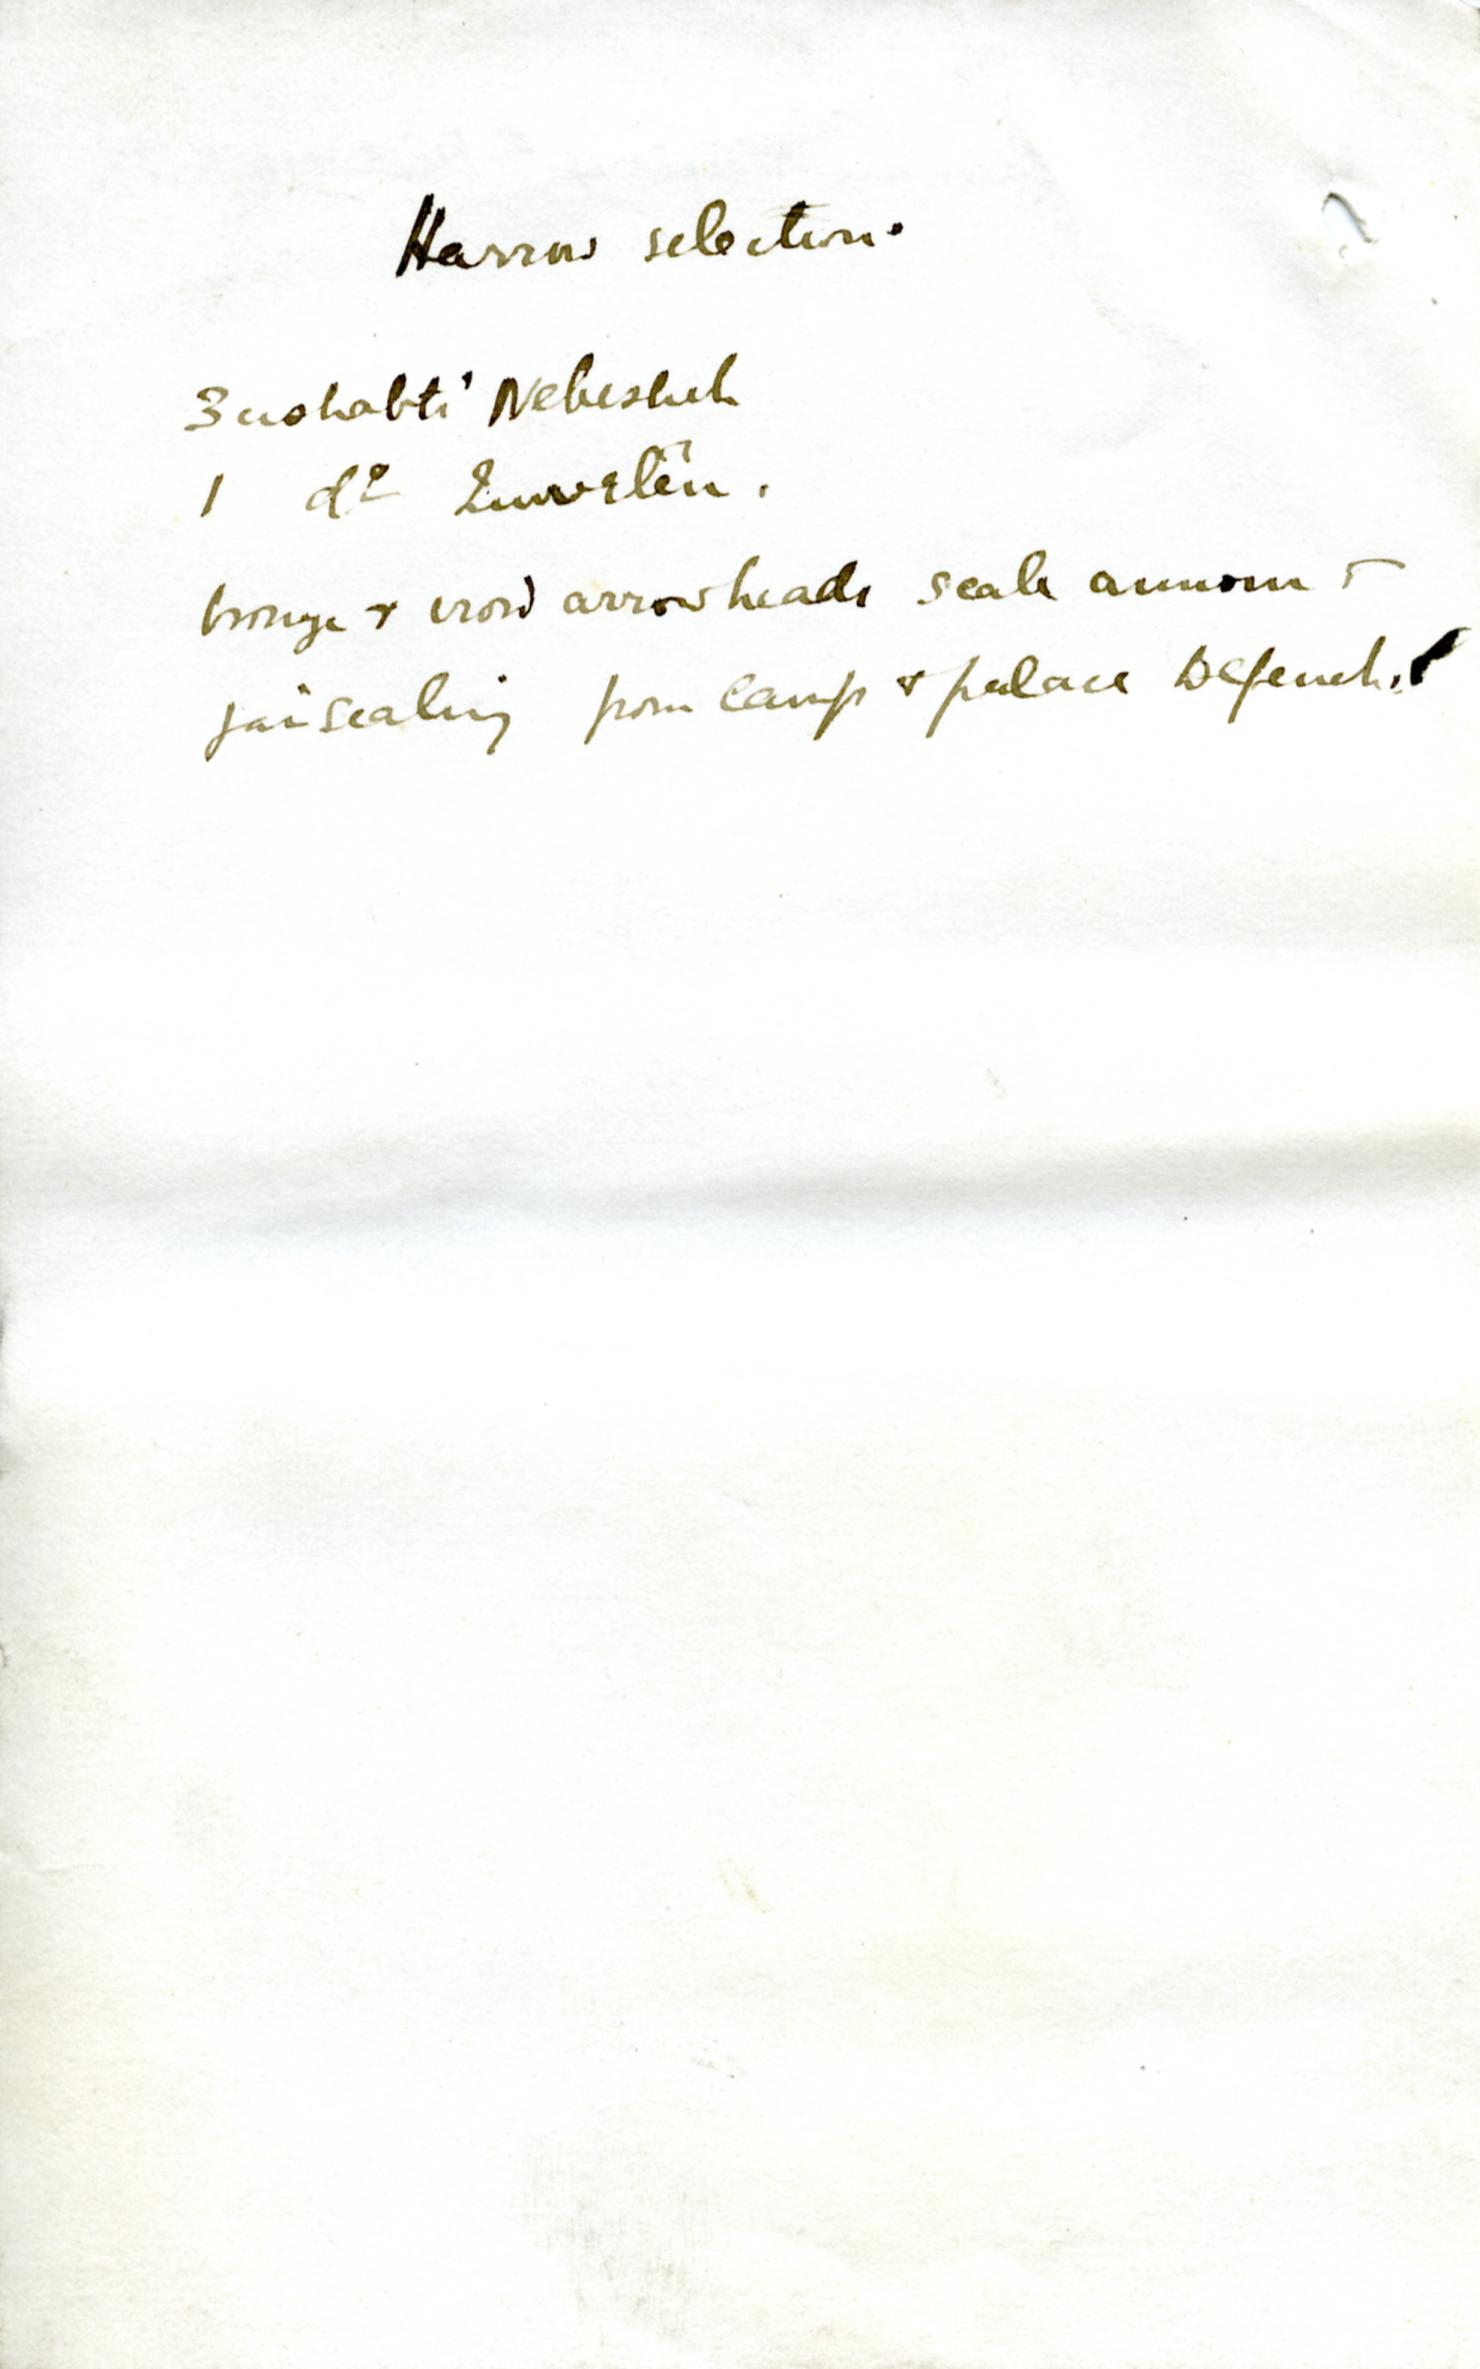 Harrow selection.
3 ushabti' Nebesheh
1 do Zuwelēn.
bronze & iron arrowheads scale armour &
jar sealing from camp & palace Defeneh.